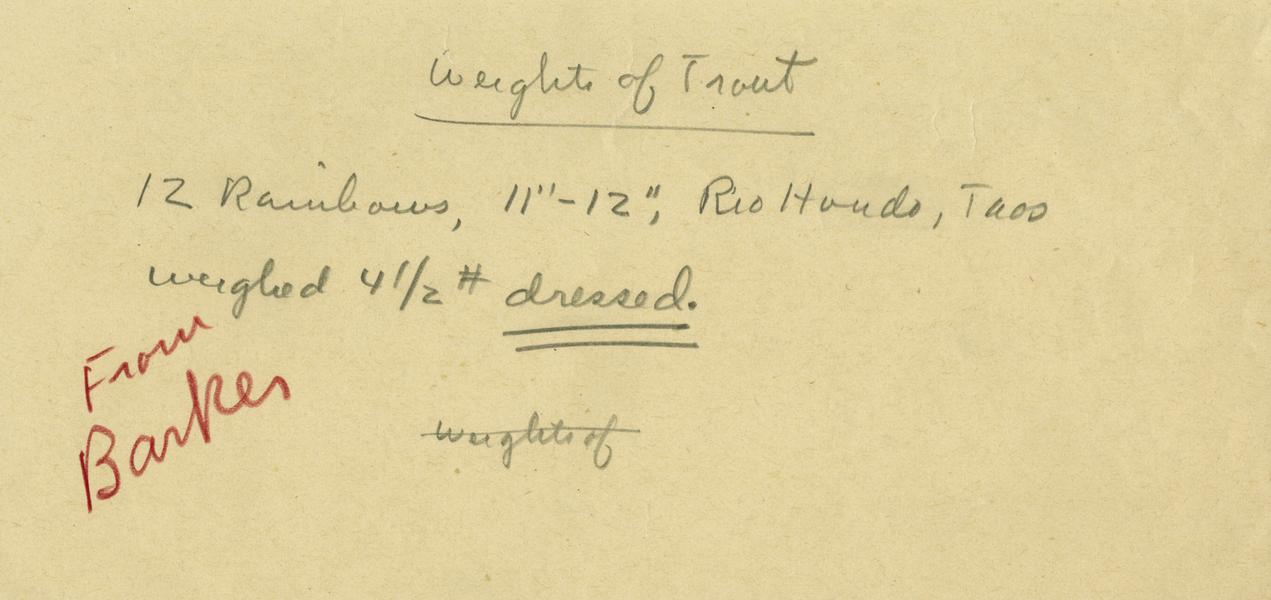 Weights of Trout
12 Rainbows, 11"-12", Rio Hondo, Taos
weighed 4 1/2 # dressed.
From
Barker
Weights of